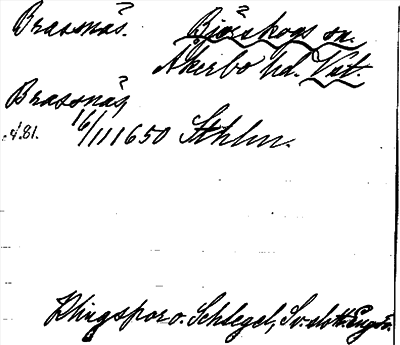 Brasnäs. Björskogs sn.
Åkerbo hd. Vstl.
Brassnäs
d.81. 16/11 1650 Sthlm.
Klingspor o. Schlegel, Sv. slott: Engsö.